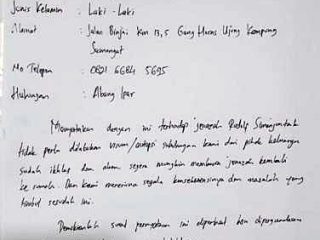 Jenis Kelamin : Laki - Laki
Alamat : Jalan Binjai Km 13,5 Gang Horas Ujung Kampung
Semangat
No Telepon : 0821 6684 5695
Hubungan : Abang Ipar
Menyatakan dengan ini terhadap jenazah
tidak perlu dilakukan visum/autopsi sehubungan kami dari pihak keluarga
sudah ikhlas dan akan segera mungkin membawa jenazah kembali
ke rumah. Dan kami menerima segala konsekuensinya dan masalah yang
timbul sesudah ini.
Demikianlah surat pernyataan ini diperbuat dan dipergunakan